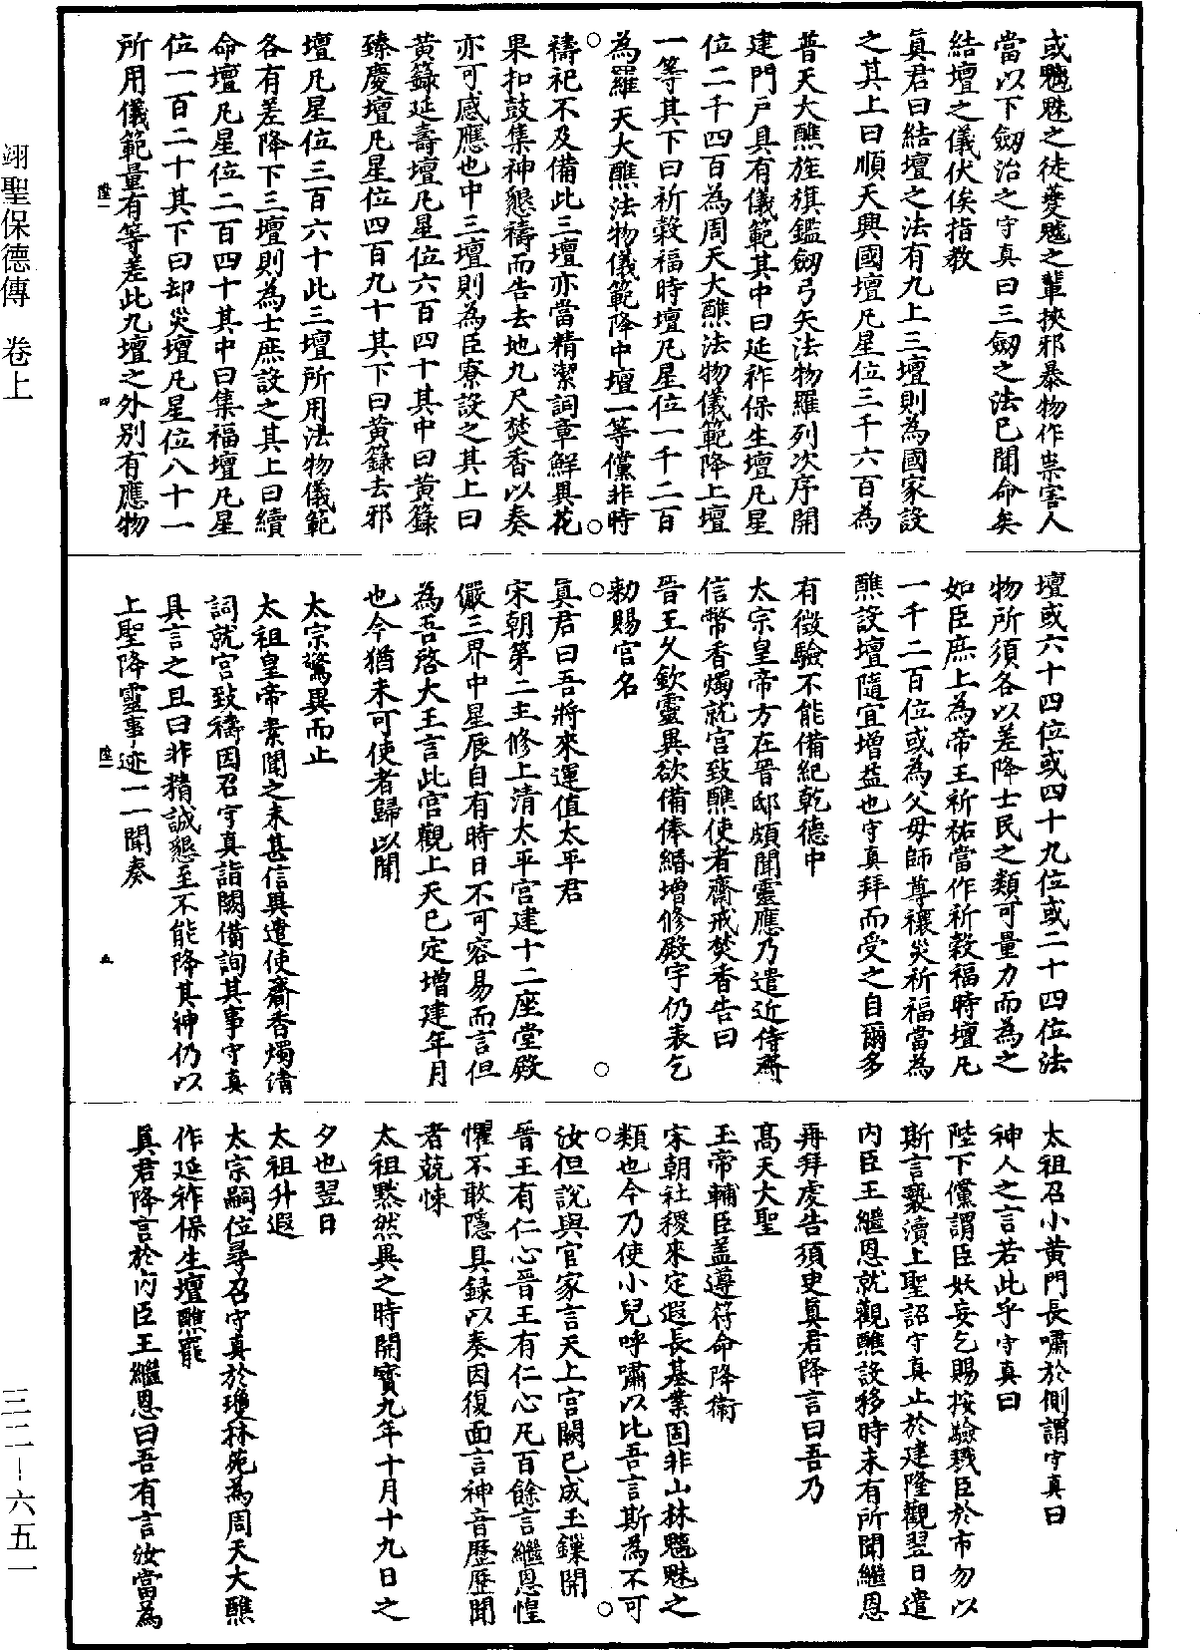 翊聖保德傳　卷上
三二－六五一
或魑魅之徒夔魖之輩挾邪暴物作祟害人
當以下劔治之守真曰三劔之法已聞命矣
結壇之儀伏俟指教
真君曰結壇之法有九上三壇則為國家設
之其上曰順天興國壇凡星位三千六百為
普天大醮旌旗鑑劔弓矢法物羅列次序開
建門戶具有儀範其中曰延祚保生壇凡星
位二千四百為周天大醮法物儀範降上壇
一等其下曰祈穀福時壇凡星位一千二百
為羅天大醮法物儀範降中壇一等儻非時
禱祀不及備此三壇亦當精潔詞章鮮異花
果扣鼓集神懇禱而告去地九尺焚香以奏
亦可感應也中三壇則為臣寮設之其上曰
黃籙延壽壇凡星位六百四十其中曰黃籙
臻慶壇凡星位四百九十其下曰黃籙去邪
壇凡星位三百六十此三壇所用法物儀範
各有差降下三壇則為士庶設之其上曰續
命壇凡星位二百四十其中曰集福壇凡星
位一百二十其下曰却災壇凡星位八十一
所用儀範量有等差此九壇之外別有應物
四
壇或六十四位或四十九位或二十四位法
物所須各以差降士民之類可量力而為之
如臣庶上為帝王祈祐當作祈穀福時壇凡
一千二百位或為父母師尊禳災祈福當為
醮設壇隨宜增益也守真拜而受之自爾多
有徵驗不能備紀乾德中
太宗皇帝方在晉邸頗聞靈應乃遣近侍齎
信幣香燭就宮致醮使者齋戒焚香告曰
晉王久欽靈異欲備俸緡增修殿宇仍表乞
勅賜官名
真君曰吾將來運值太平君
宋朝第二主修上清太平宮建十二座堂殿
儼三界中星辰自有時日不可容易而言但
為吾啓大王言此宮觀上天已定增建年月
也今猶未可使者歸以聞
太宗驚異而止
太祖皇帝素聞之未甚信異遣使齎香燭清
詞就宮致禱因召守真詣闕備詢其事守真
具言之且曰非精誠懇至不能降其神仍以
上聖降靈事迹一一聞奏
五
太祖召小黃門長嘯於側謂守真曰
神人之言若此乎守真曰
陛下儻謂臣妖妄乞賜按驗戮臣於市勿以
斯言褻瀆上聖詔守真止於建隆觀翌日遣
內臣王繼恩就觀醮設移時未有所聞繼恩
再拜虔告須臾真君降言曰吾乃
高天大聖
玉帝輔臣蓋遵符命降衛
宋朝社稷來定遐長基業固非山林魑魅之
類也今乃使小兒呼嘯以比吾言斯為不可
汝但說與官家言天上宮闕已成玉鏁開
晉王有仁心晉王有仁心凡百餘言繼恩惶
懼不敢隱具録以奏因復面言神音歷歷聞
者兢悚
太祖默然異之時開寶九年十月十九日之
夕也翌日
太祖升遐
太宗嗣位尋召守真於瓊林苑為周天大醮
作延祚保生壇醮罷
真君降言於內臣王繼恩曰吾有言汝當為